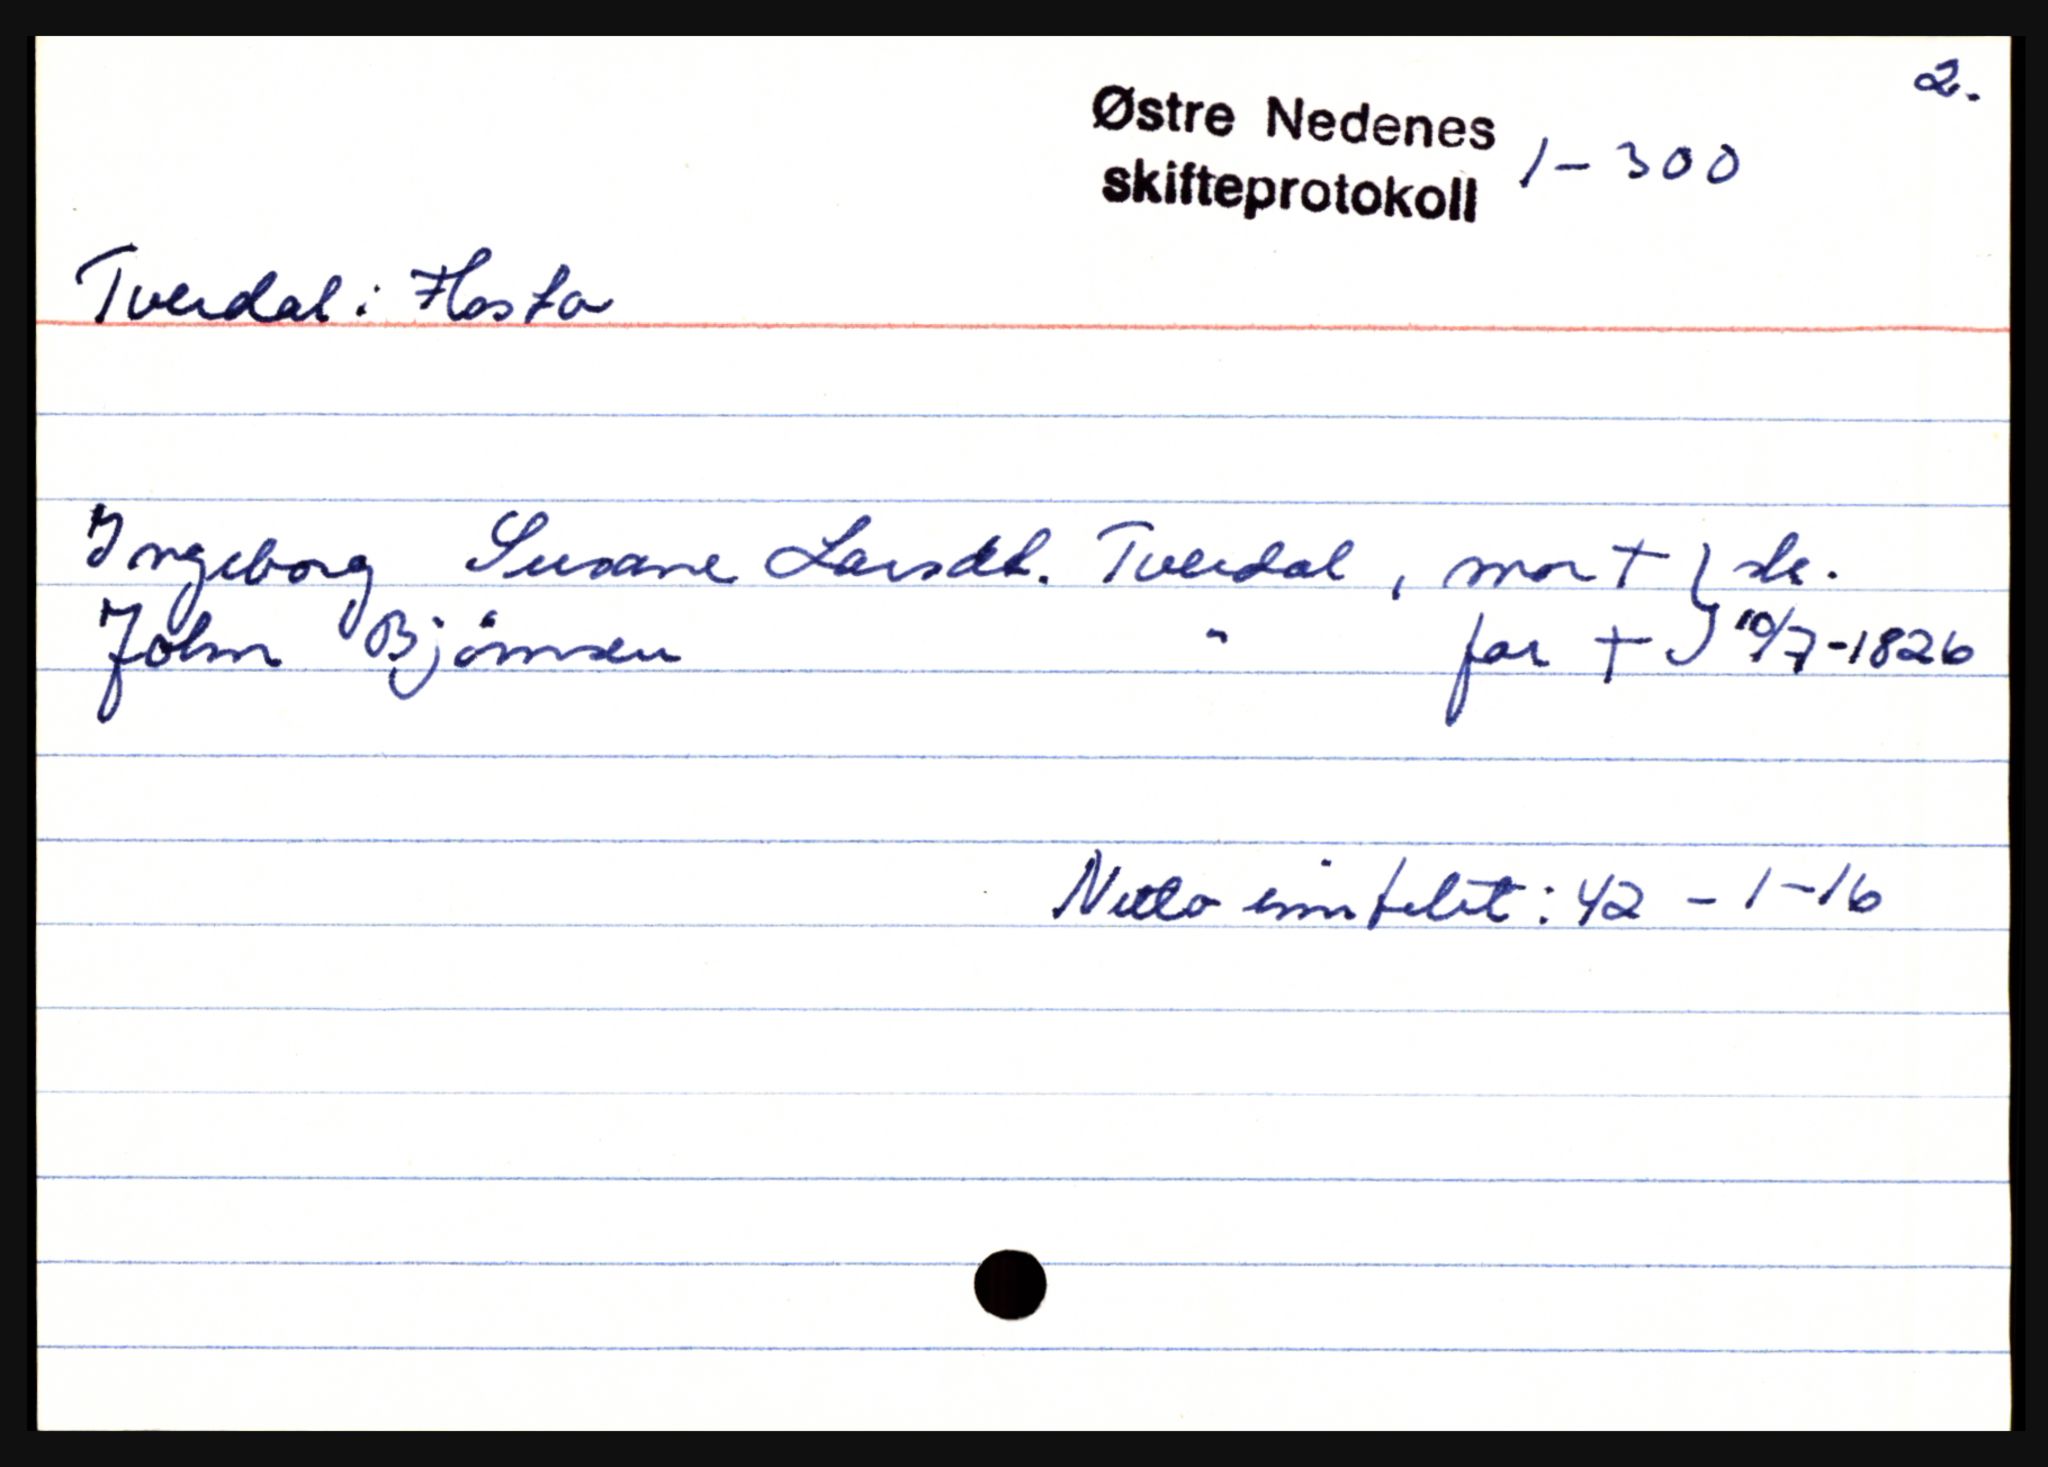 2.
Østre Nedenes
skifteprotokoll 1-300
Tverdal i Flosta
Ingeborg Susane Larsdt. Tverdal, mor † } sk.
John Bjørnsen " far † } 10/7-1826
Netto innfelit: 42 - 1-16